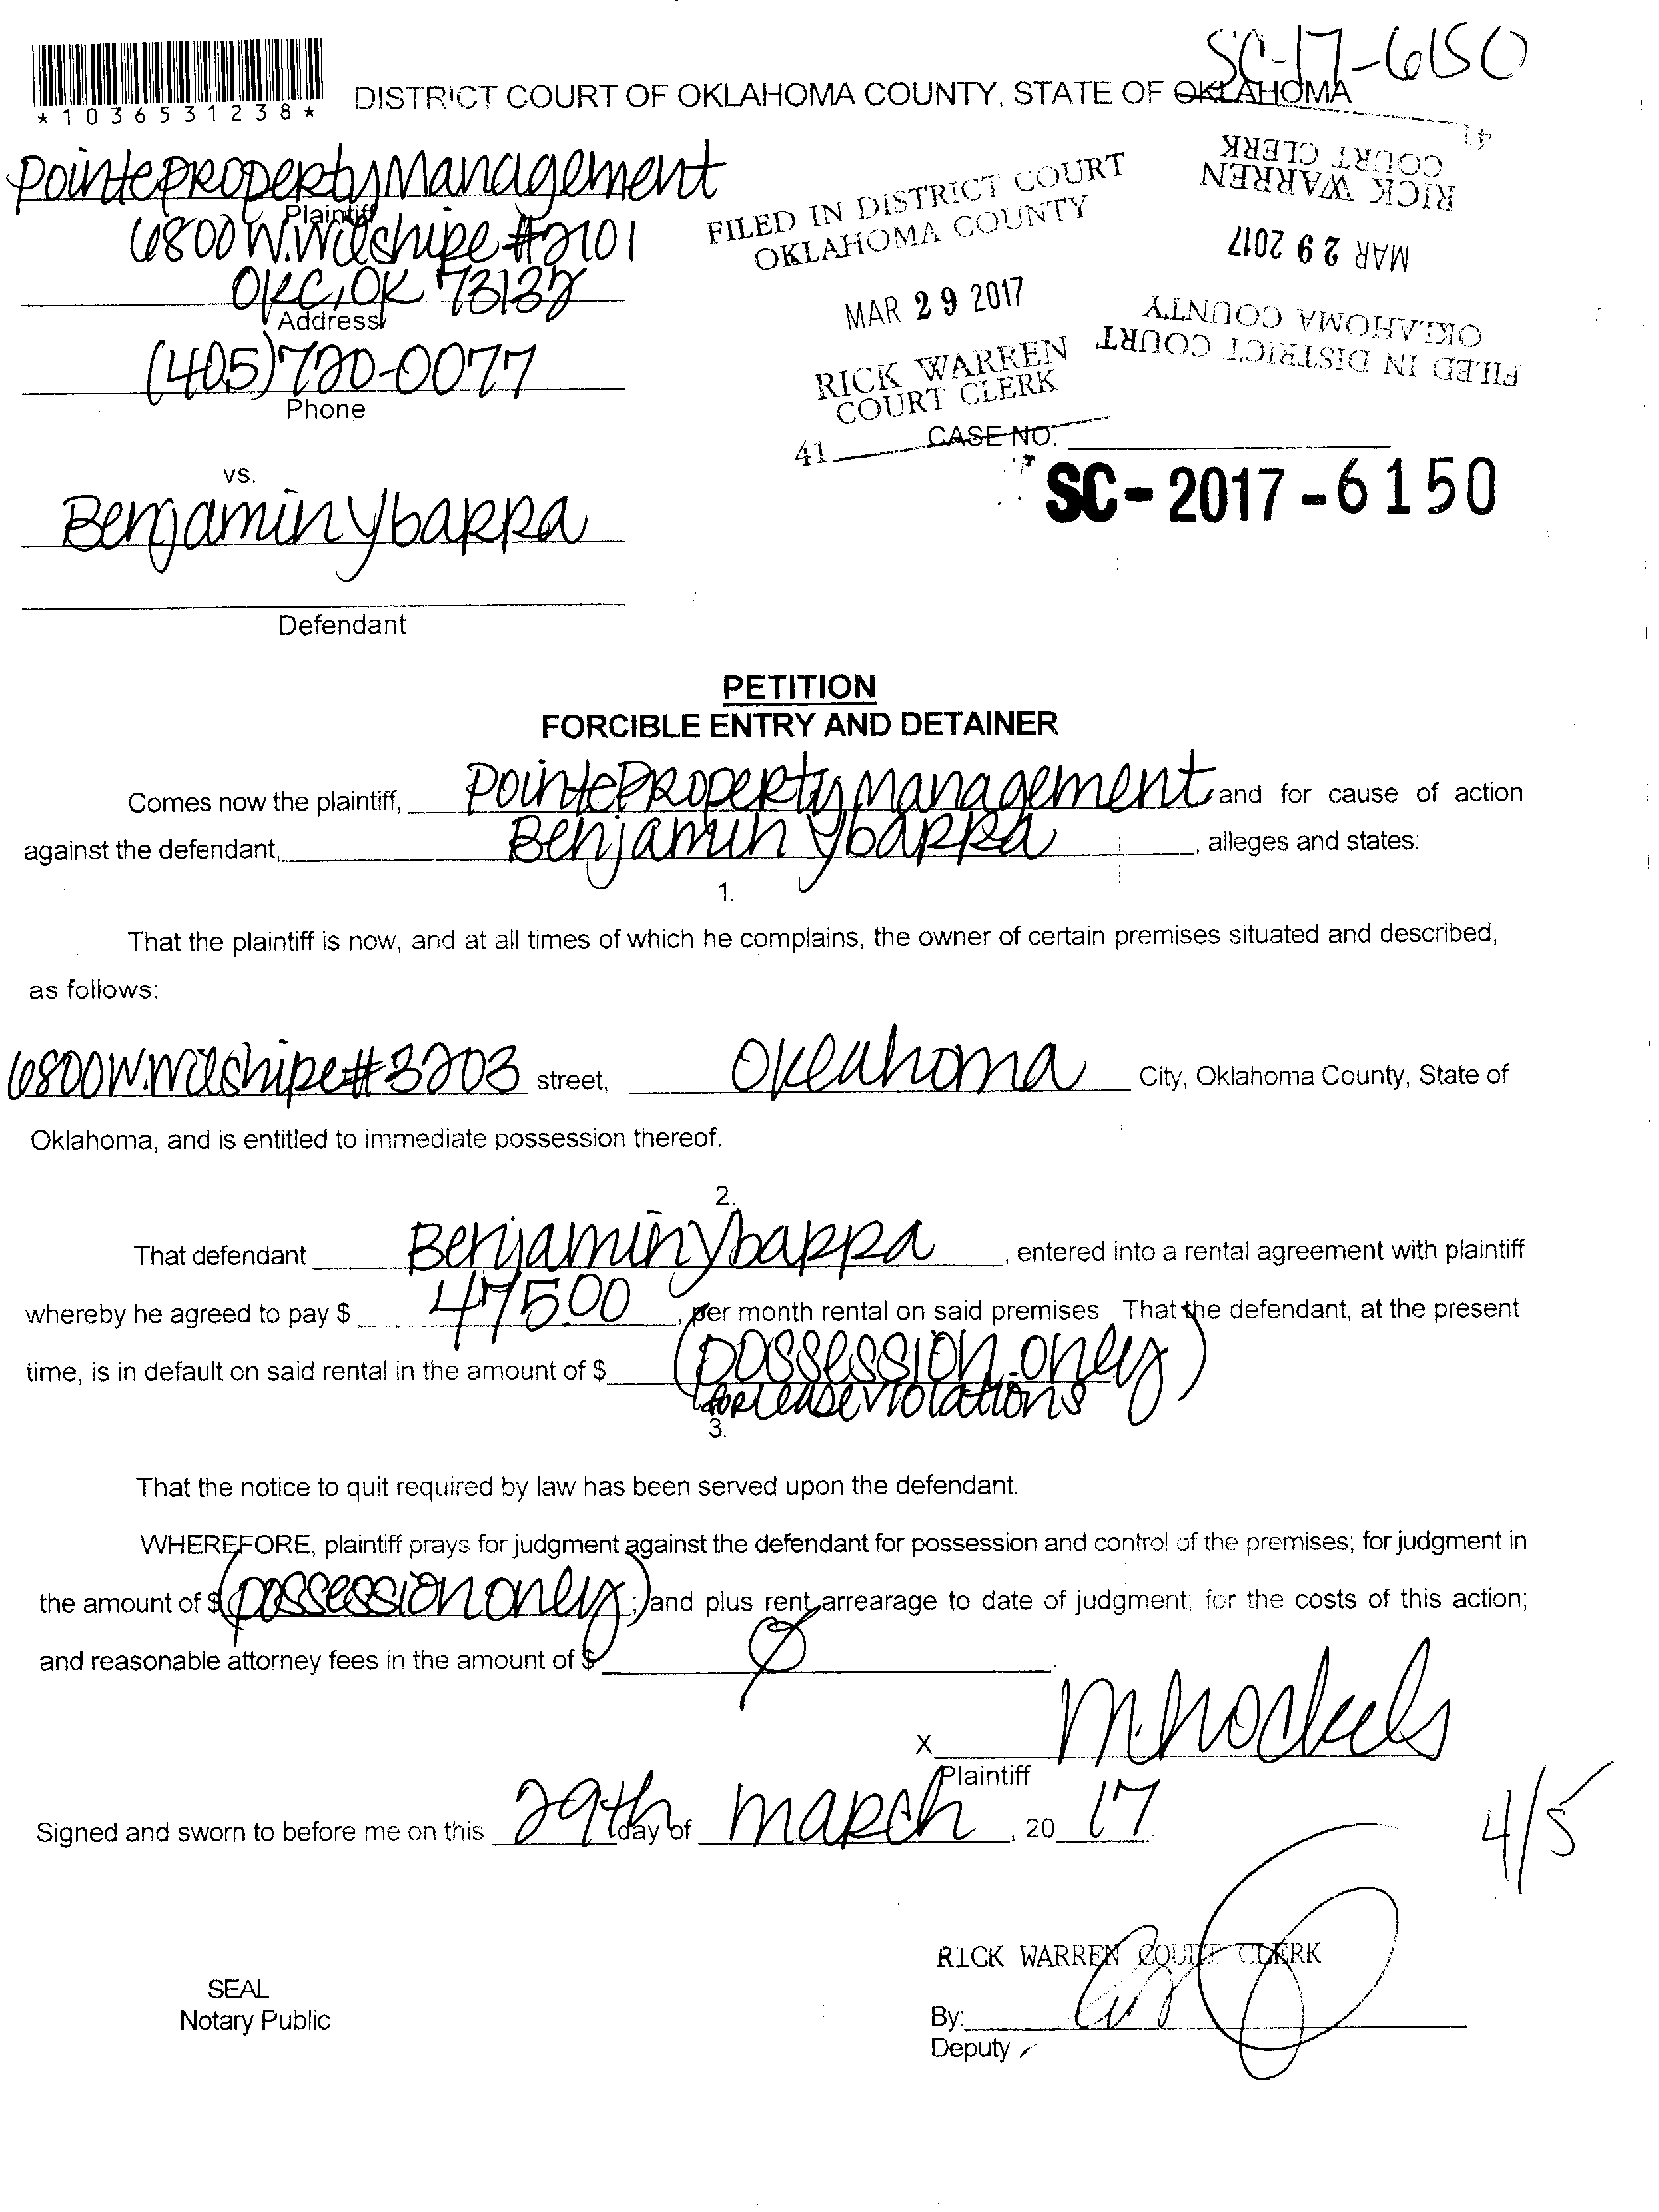 SC-17-6150
*1036531238*
DISTRICT COURT OF OKLAHOMA COUNTY, STATE OF OKLAHOMA
Pointe Property Management
Plaintiff
6800 W. Wilshire #2101
OKC, OK 73132
Address
(405) 720-0077
Phone
FILED IN DISTRICT COURT
OKLAHOMA COUNTY
MAR 29 2017
RICK WARREN
COURT CLERK
41
FILED IN DISTRICT COURT
OKLAHOMA COUNTY
MAR 29 2017
RICK WARREN
COURT CLERK
41
CASE NO.
SC-2017-6150
vs.
Benjamin Ybarra
Defendant
PETITION
FORCIBLE ENTRY AND DETAINER
Comes now the plaintiff, Pointe Property Management and for cause of action
against the defendant, Benjamin Ybarra, alleges and states:
1.
That the plaintiff is now, and at all times of which he complains, the owner of certain premises situated and described,
as follows:
6800 W. Wilshire #3203 street, Oklahoma City, Oklahoma County, State of
Oklahoma, and is entitled to immediate possession thereof.
2.
That defendant Benjamin Ybarra, entered into a rental agreement with plaintiff
whereby he agreed to pay $ 475.00, per month rental on said premises That the defendant, at the present
time, is in default on said rental in the amount of $ (possession only)
for lease violations
3.
That the notice to quit required by law has been served upon the defendant.
WHEREFORE, plaintiff prays for judgment against the defendant for possession and control of the premises; for judgment in
the amount of $ (possession only); and plus rent arrearage to date of judgment; for the costs of this action;
and reasonable attorney fees in the amount of $ Ø
X M. Hockels
Plaintiff
Signed and sworn to before me on this 29th day of March, 20 17
4/5
RICK WARREN COURT CLERK
SEAL
Notary Public
By:
Deputy